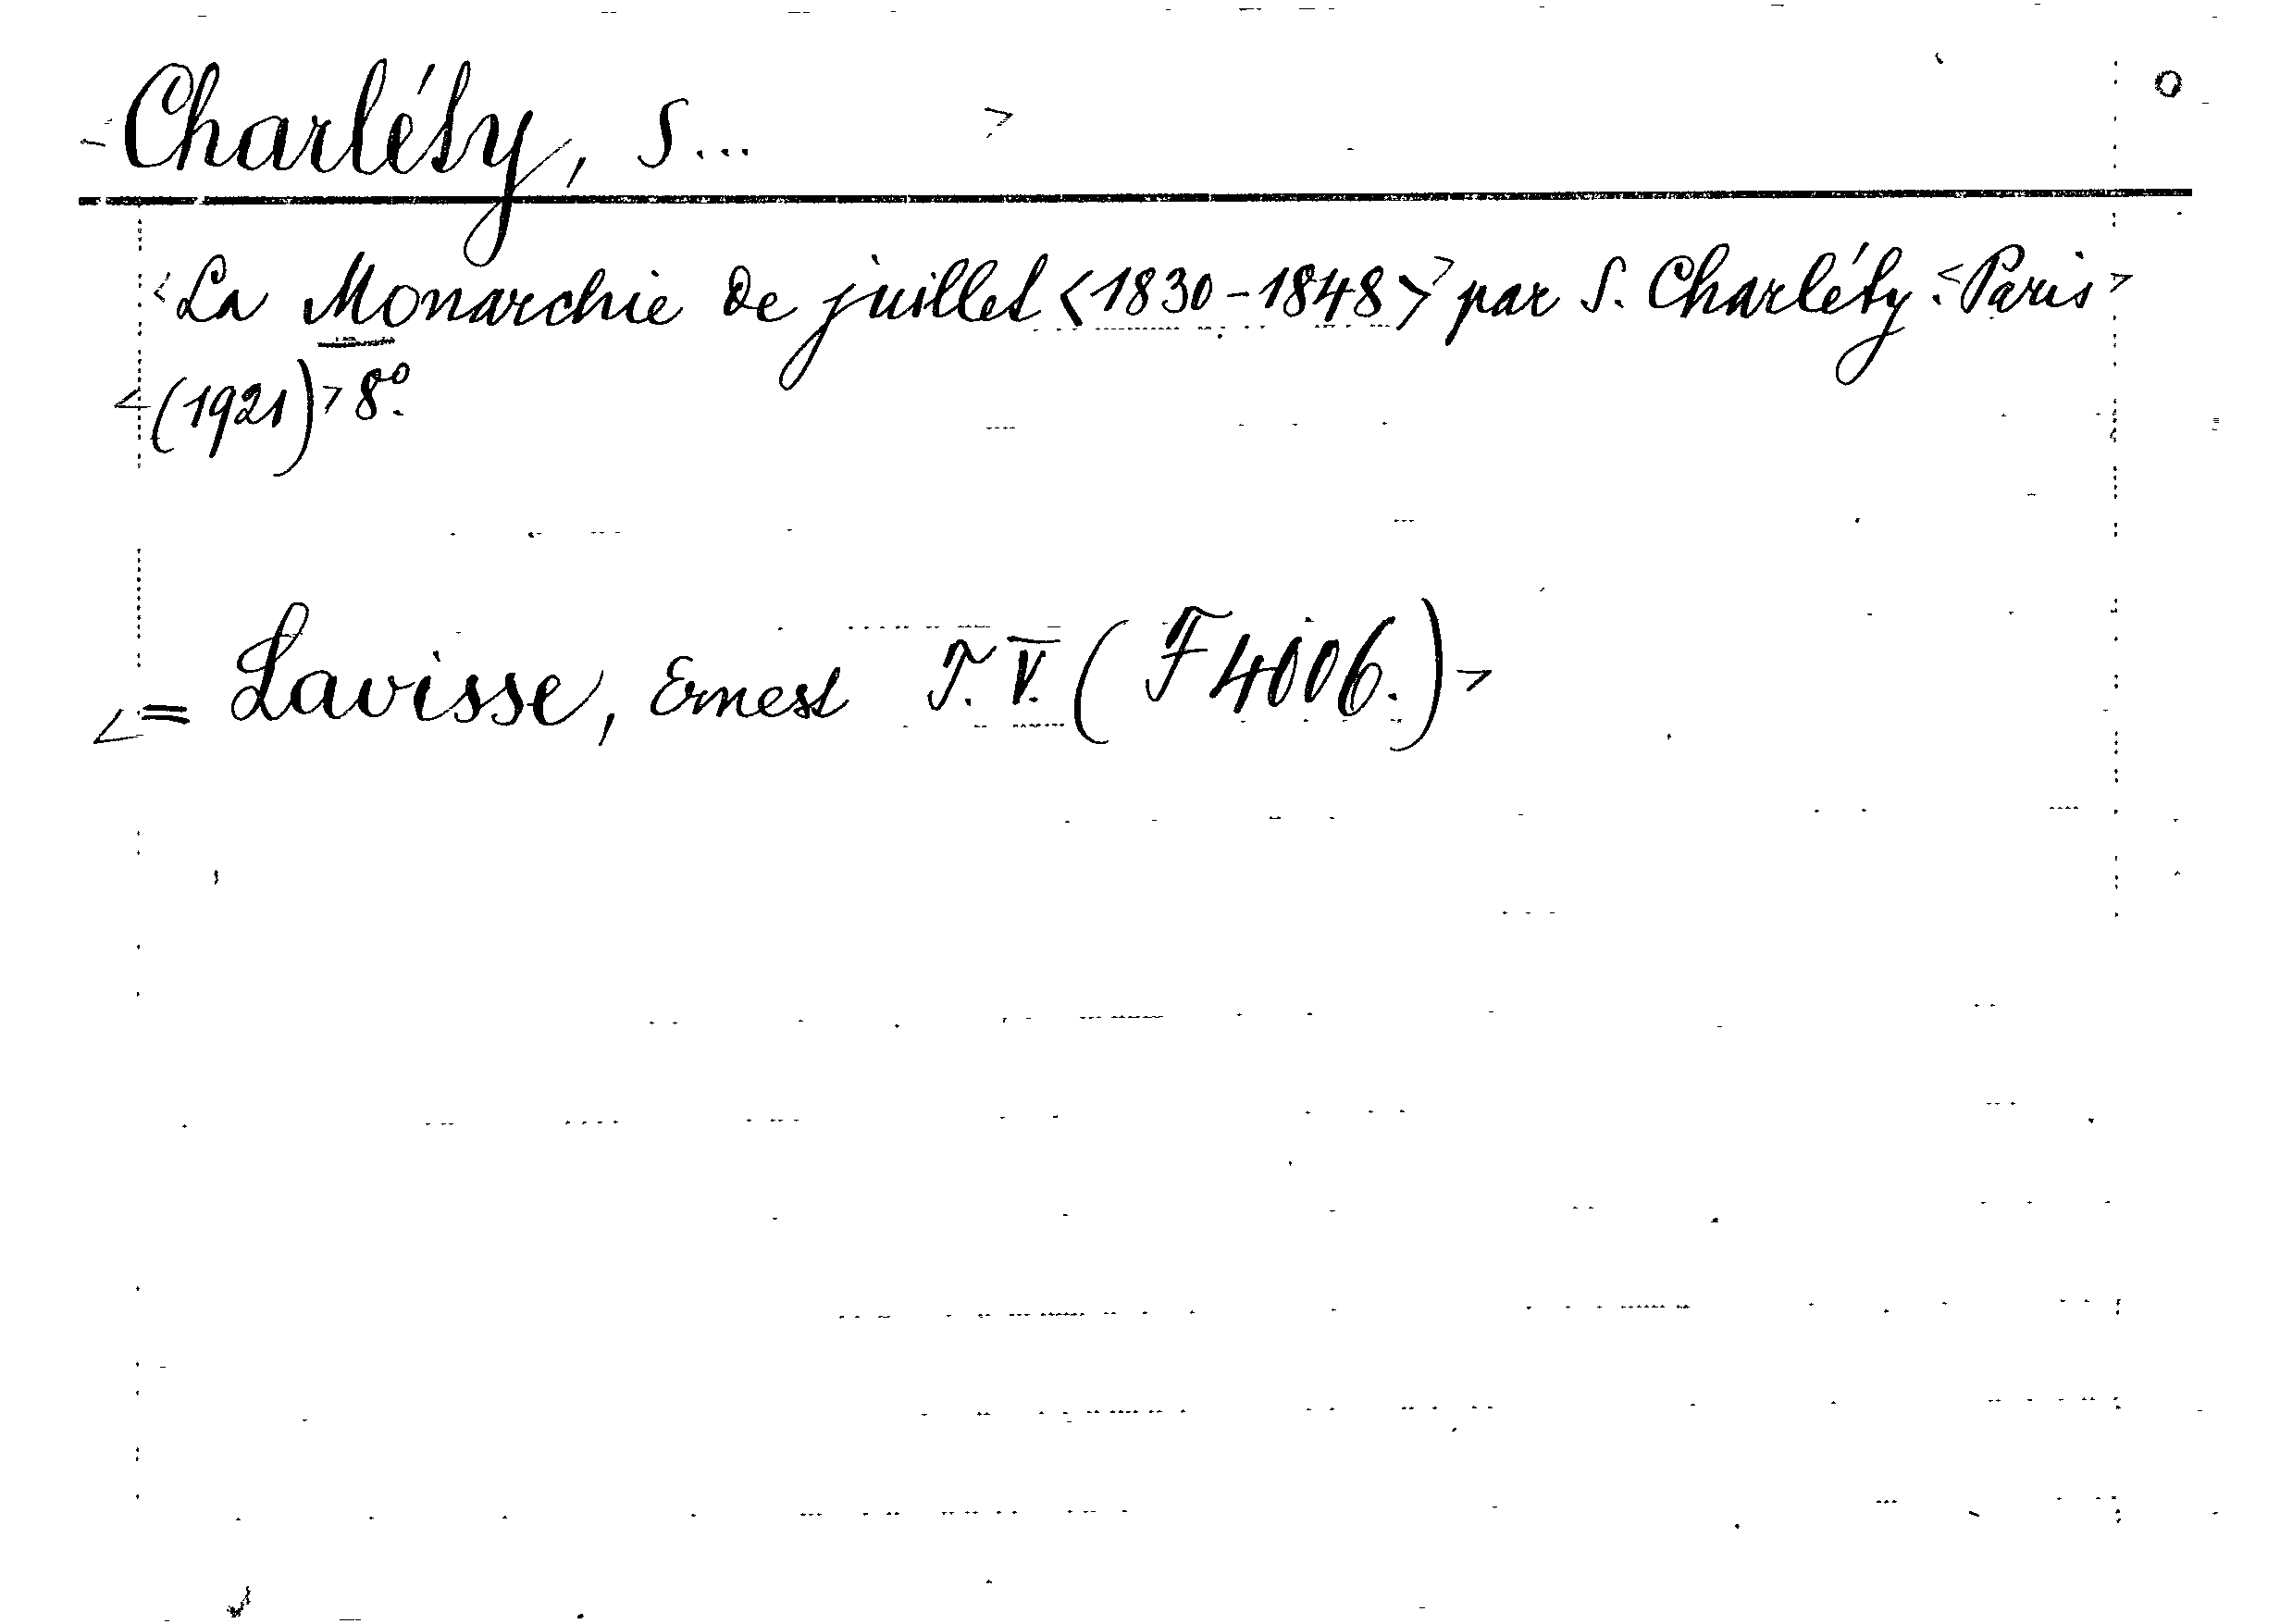 Charléty, S...
La Monarchie de juillet <1830-1848> par S. Charléty: Paris
(1921) 8º.
= Lavisse, Ernest T. V. (F 4006.)